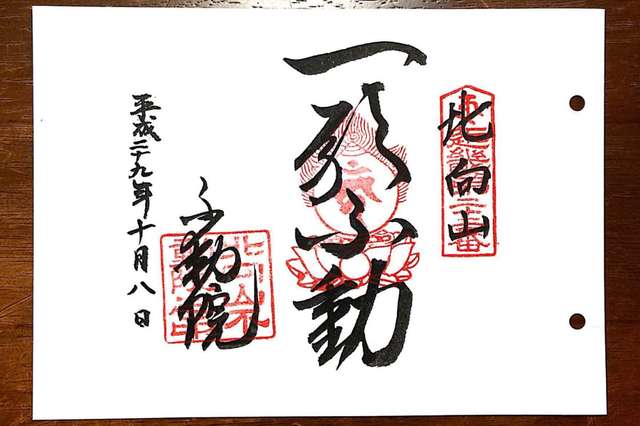 北向山
一願不動
不動院
平成二十九年十月八日